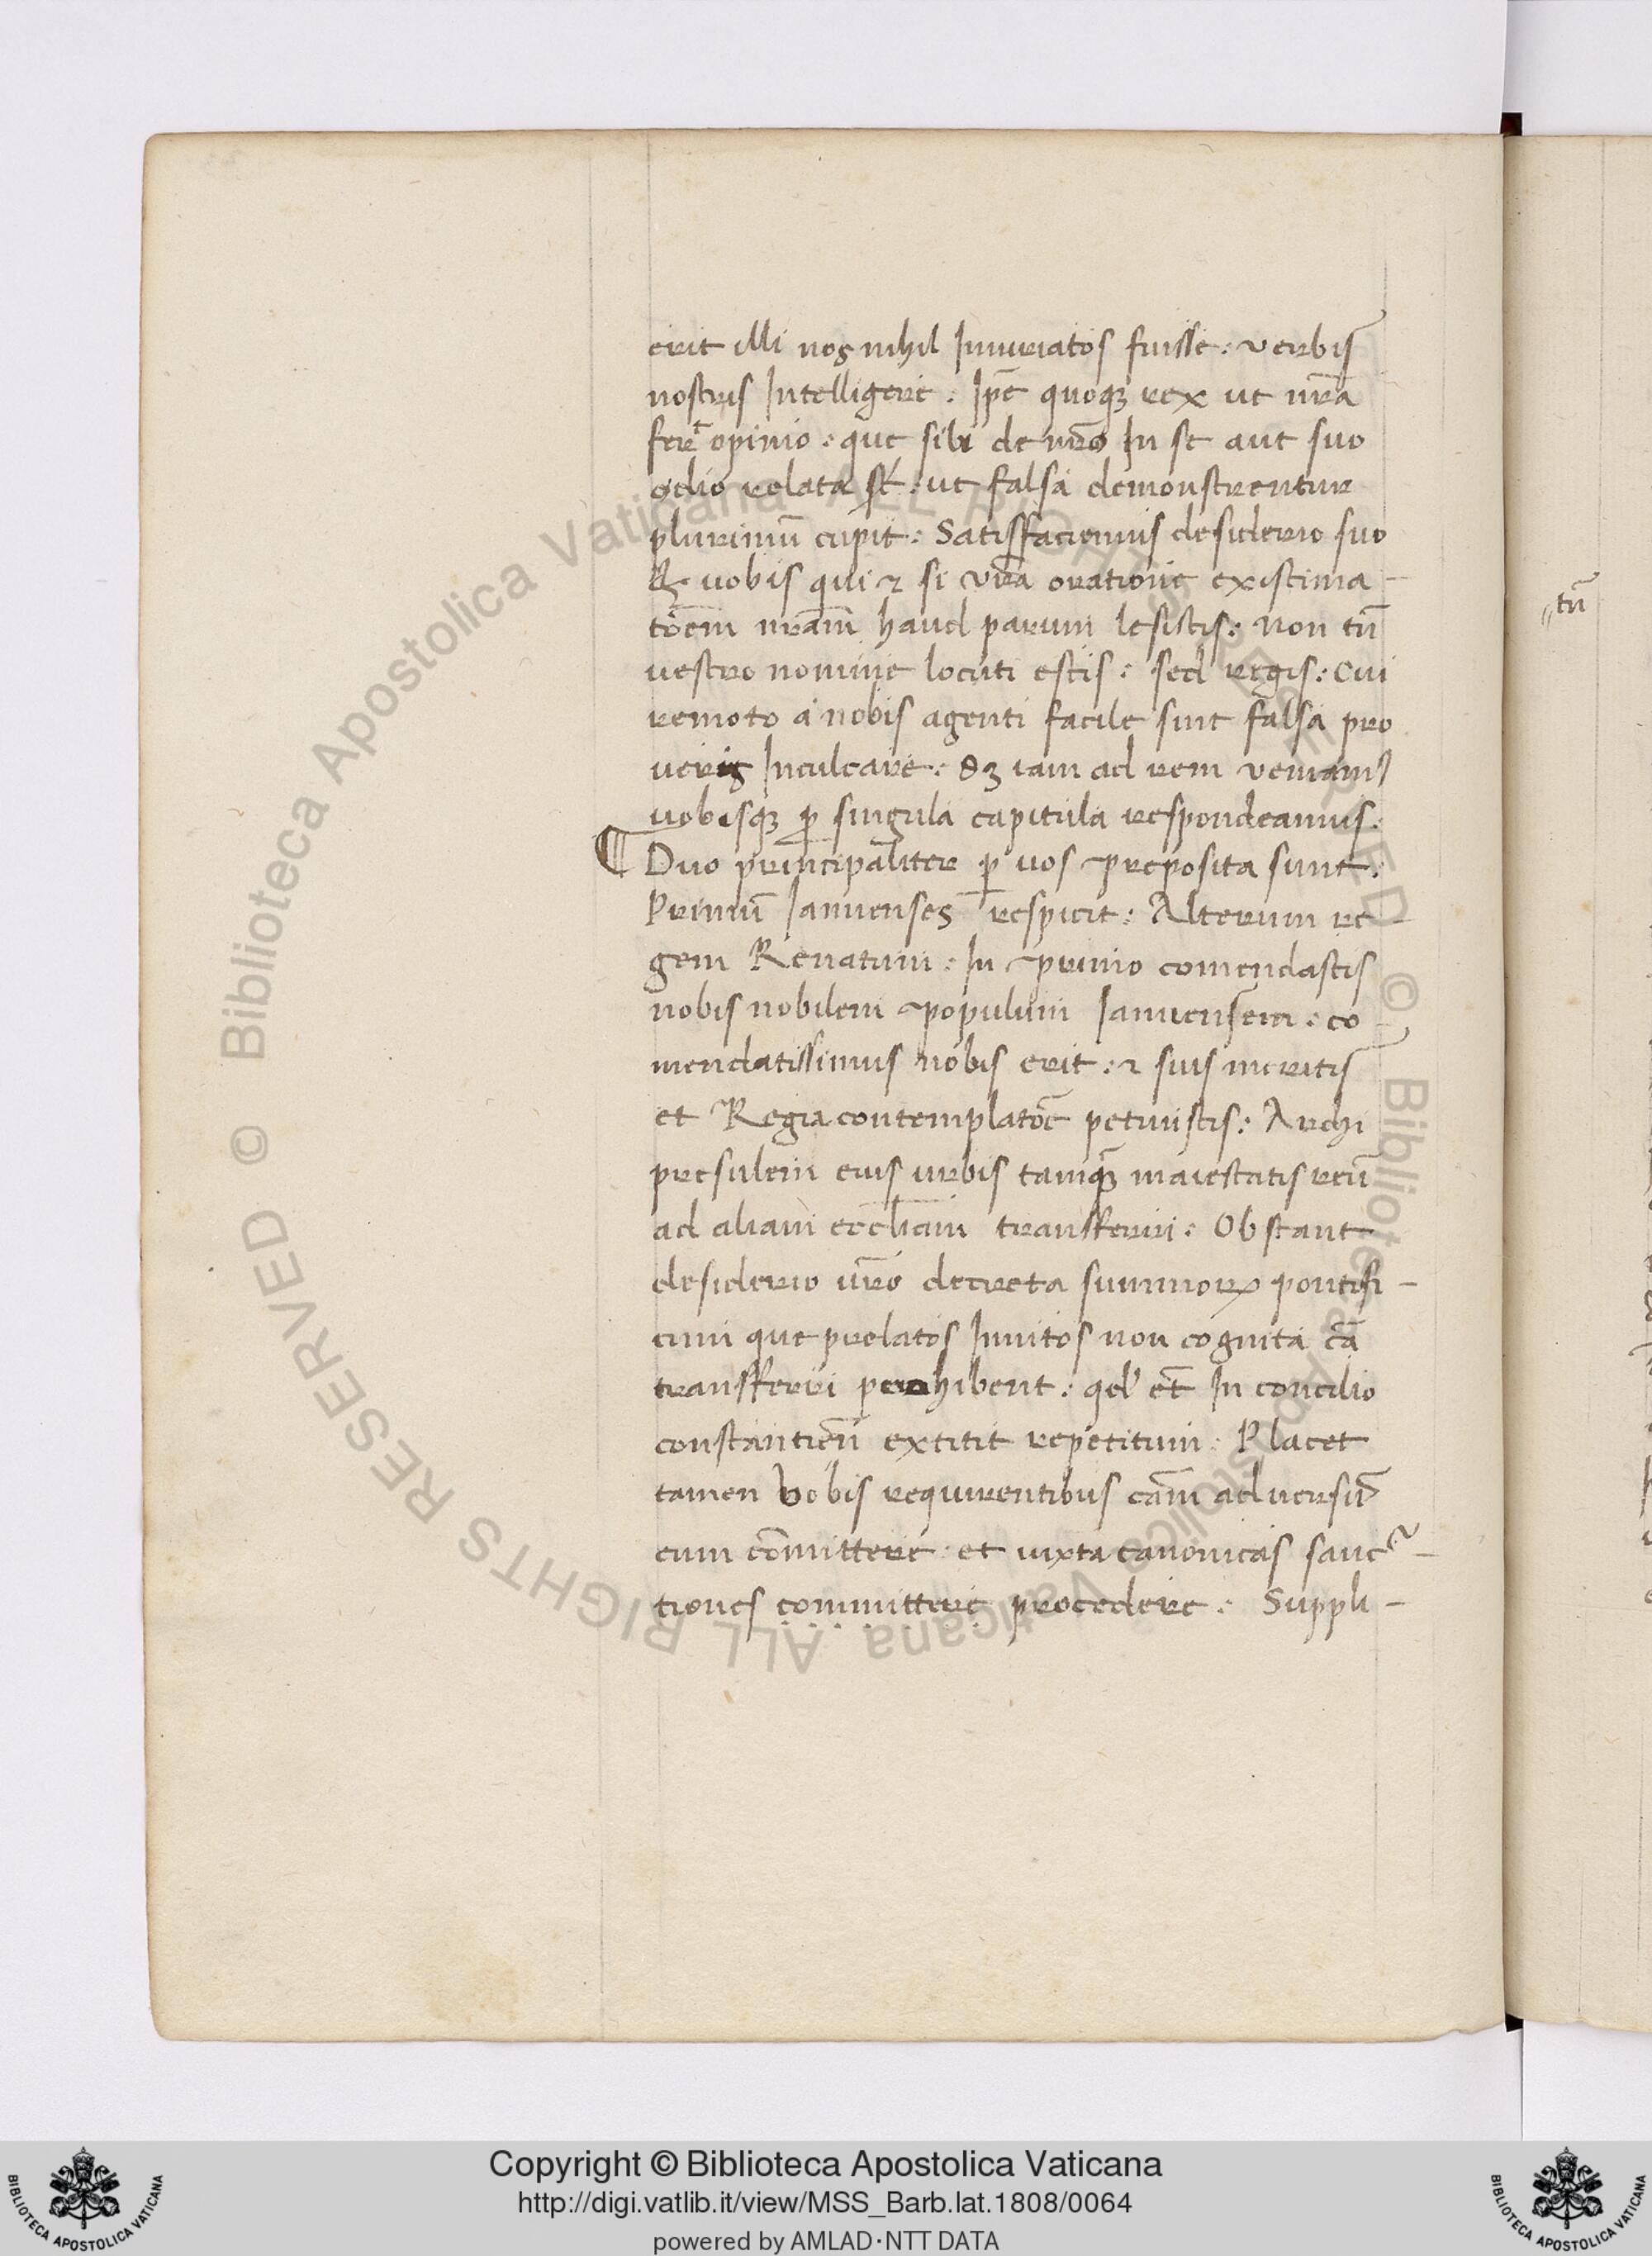 erit illi nos nihil Iniuriatos fuisse : verbis
nostris Intelligere : Ip̄e quoq3 rex ut nr̄a
fert opinio : que sibi de nr̄o In se aut suo
odio relata st̄ : ut falsa demonstrentur
plurimū cupit : Satisfaciemus desiderio suo
& uobis qui ⁊ si vr̄a oratione existima-
tōem nr̄am haud parum lesistis : non tn̄
vestro nomine locuti estis : sed regis : Cui
remoto a nobis agenti facile sint falsa pro
veris Inculcare : S3 iam ad rem veniam9
uobisq3 p̱ singula capitula respondeamus :
¶ Duo principaliter p̱ uos preposita sunt :
Primū Ianuenses respicit : Alterum re-
gem Renatum : In primo comendastis
nobis nobilem populum Ianuensem : co-
mendatissimus nobis erit : ⁊ suis meritis
et Regia contemplatōe petiuistis : Archi
presulem eius urbis tamq̄3 maiestatis reū
ad aliam ecc̄liam transferri : Obstant
desiderio vr̄o decreta summorꝝ pontifi-
cum que prelatos Inuitos non cognita cā
transferri perhibent : qd' et̄ In concilio
constantien̄ extitit repetitum : Placet
tamen vobis requirentibus cām aduersū
eum cōmittere et iuxta canonicas sanc-
tiones committere procedere : Suppli-
tn̄
© Biblioteca Apostolica Vaticana ALL RIGHTS RESERVED © Biblioteca Apostolica Vaticana ALL RIGHTS RESERVED
BIBLIOTECA APOSTOLICA VATICANA
Copyright © Biblioteca Apostolica Vaticana
http://digi.vatlib.it/view/MSS_Barb.lat.1808/0064
powered by AMLAD·NTT DATA
BIBLIOTECA APOSTOLICA VATICANA